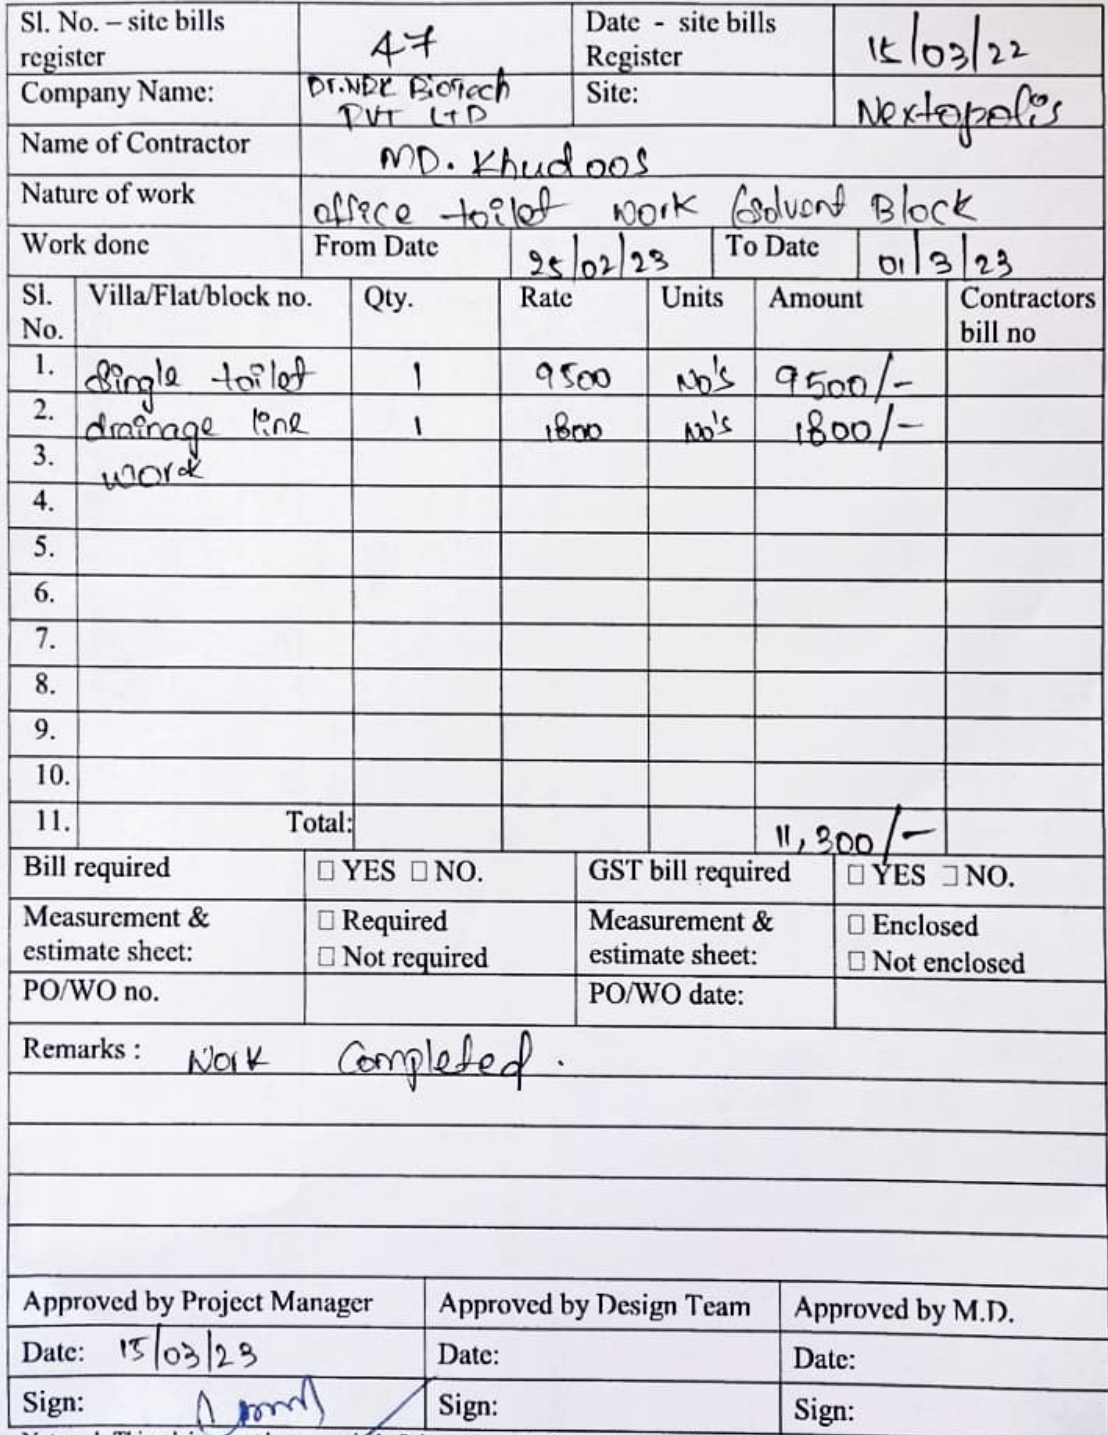 Sl. No. – site bills register 47 Date - site bills Register 15/03/22
Company Name: Dr.NRK Biotech PVT LTD Site: Nextopolis
Name of Contractor MD. Khudoos
Nature of work office toilet work (solvent Block
Work done From Date 25/02/23 To Date 01/3/23
Sl. No. Villa/Flat/block no. Qty. Rate Units Amount Contractors bill no
1. Single toilet 1 9500 No's 9500/-
2. drainage line 1 1800 No's 1800/-
3. work
4.
5.
6.
7.
8.
9.
10.
11. Total: 11,300/-
Bill required □ YES □ NO. GST bill required □ YES □ NO.
Measurement & estimate sheet: □ Required □ Not required Measurement & estimate sheet: □ Enclosed □ Not enclosed
PO/WO no. PO/WO date:
Remarks : Work Completed .
Approved by Project Manager Approved by Design Team Approved by M.D.
Date: 15/03/23 Date: Date:
Sign: Sign: Sign: